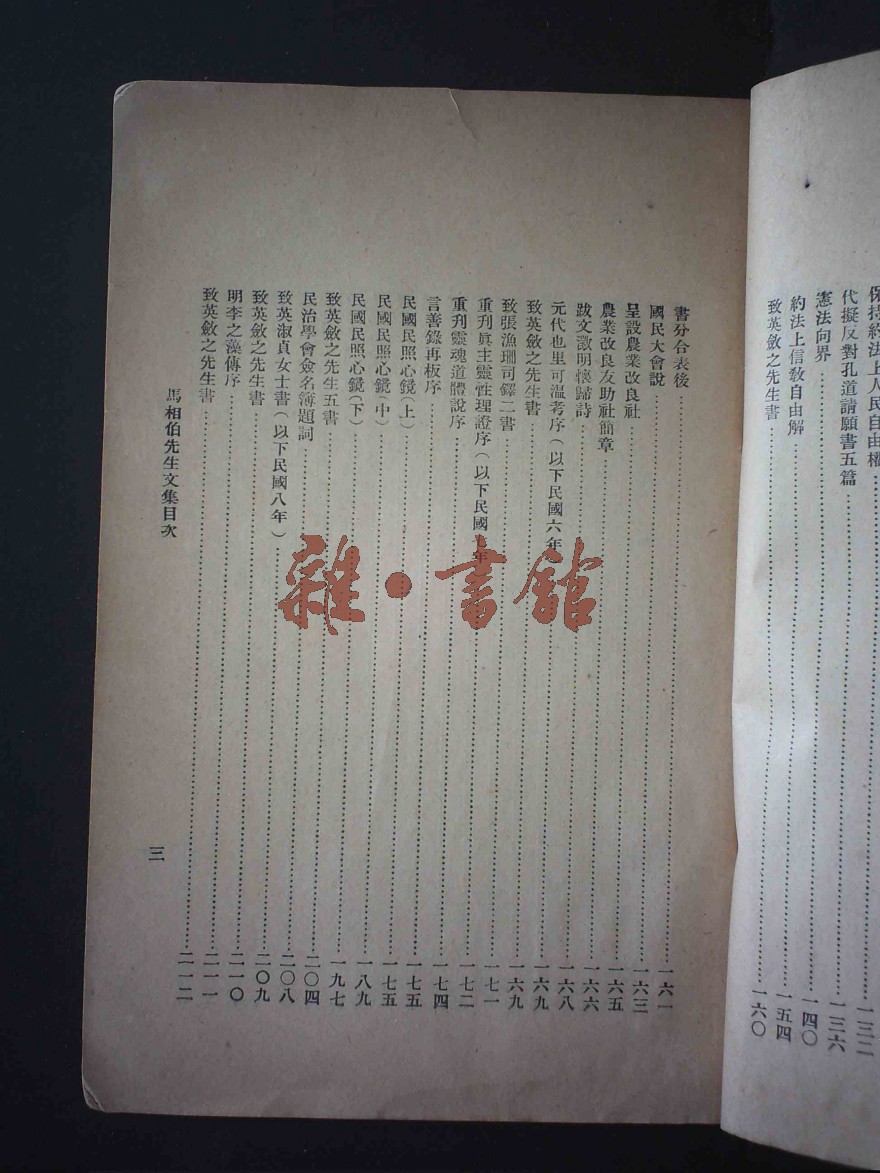 保持約法上人民自由權……一三二
代擬反對孔道請願書五篇……一三六
憲法向界……一四〇
約法上信敎自由解……一五四
致英斂之先生書……一六〇
書分合表後……一六一
國民大會說……一六三
呈設農業改良社……一六五
農業改良友助社簡章……一六六
跋文澂明懷歸詩……一六八
元代也里可溫考序(以下民國六年)……一六九
致英斂之先生書……一六九
致張漁珊司鐸二書……一七一
重刋眞主靈性理證序(以下民國七年)……一七二
重刋靈魂道體說序……一七四
言善錄再板序……一七五
民國民照心鏡(上)……一七五
民國民照心鏡(中)……一八九
民國民照心鏡(下)……一九七
致英斂之先生五書……二〇四
民治學會簽名簿題詞……二〇八
致英淑貞女士書(以下民國八年)……二〇九
致英斂之先生書……二一〇
明李之藻傳序……二一一
致英斂之先生書……二一二
馬相伯先生文集目次
三
雜·書館